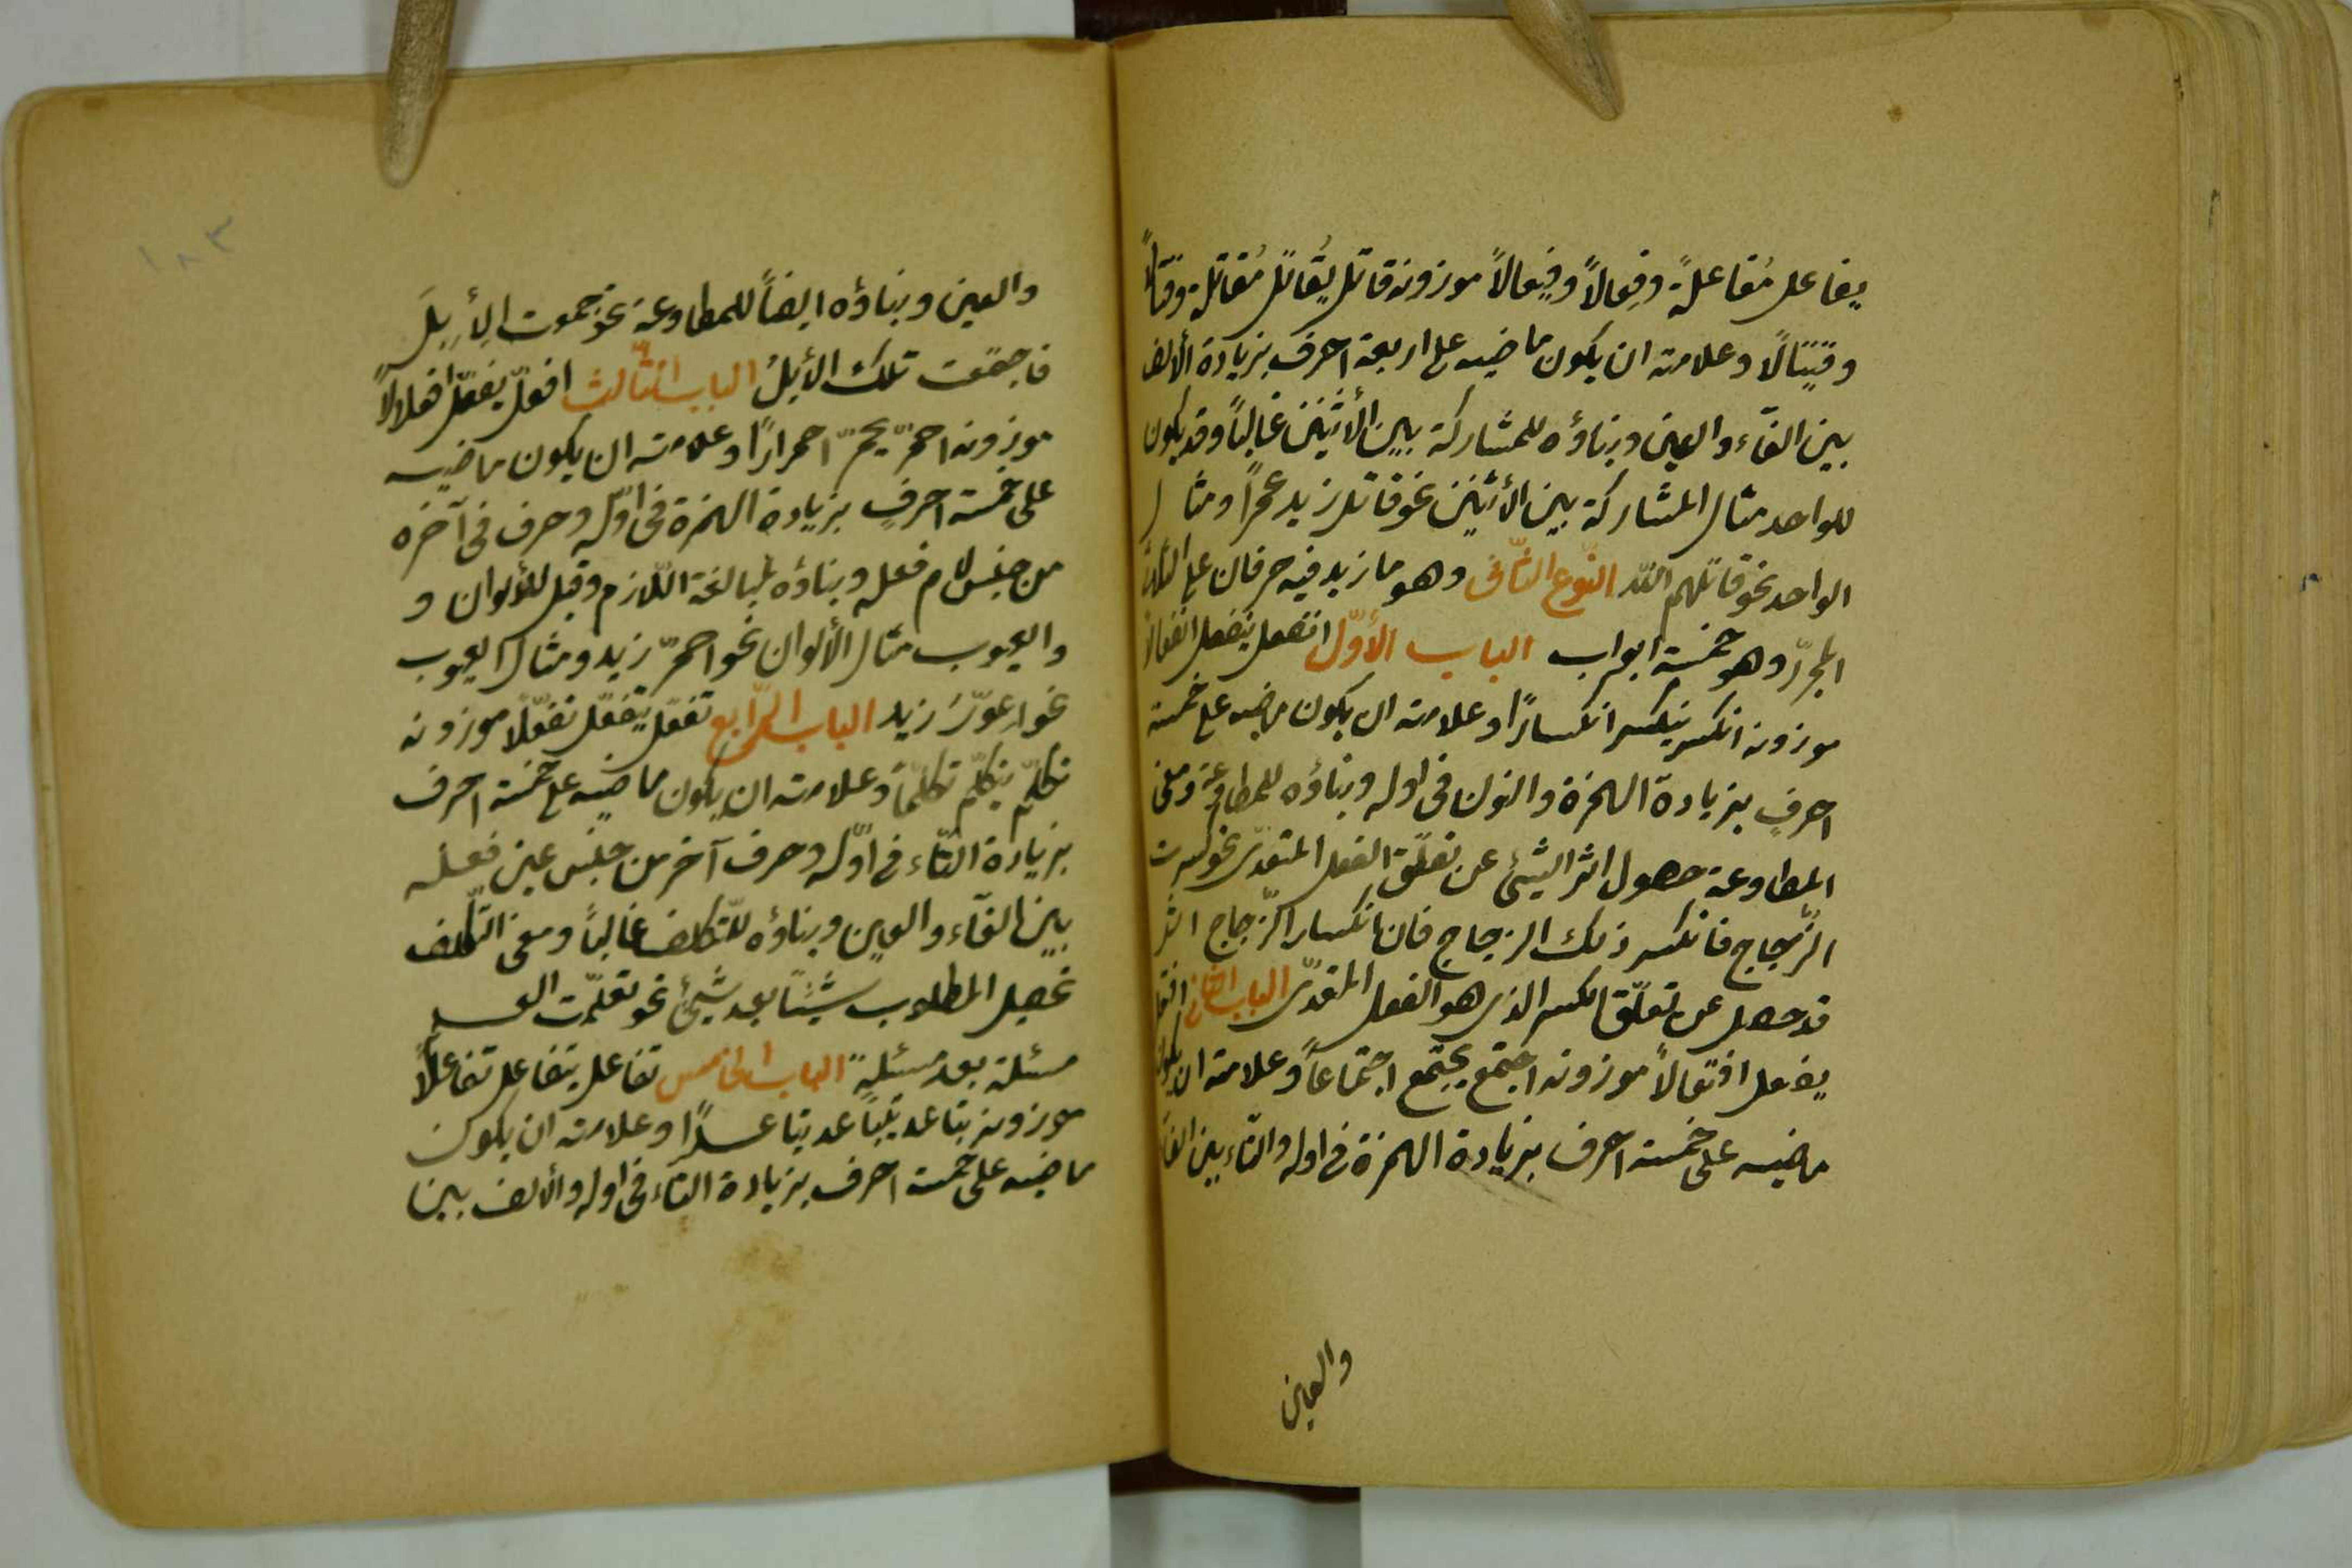 يفاعل مُفاعلةً وفِعالاً وفِيعالاً موزونه قاتل يُقاتل مُقاتلة وقتالاً
وقيتالًا وعلامته ان يكون ماضيه على اربعة احرف بزيادة الألف
بين الفآء والعين وبناؤه للمشاركة بين الأثنين غالبًا وقد يكون
للواحد مثال المشاركة بين الأثنين نحو قاتل زيد عمرًا ومثال
الواحد نحو قاتلهم اللّه النّوع الثّانى وهو ما زيد فيه حرفان على الثلاثى
المجرّد وهو خمسة ابواب الباب الأوّل انفعل ينفعل انفعالاً
موزونه انكسر ينكسر انكسارًا وعلامته ان يكون ماضيه على خمسة
احرفٍ بزيادة الهمزة والنون فى اوله وبناؤه للمطاوعة ومعنى
المطاوعة حصول اثر الشيئ عن تعلّق الفعل المتعدّى نحو كسرت
الزّجاج فانكسر ذلك الزجاج فان انكسار الزّجاج اثر
قد حصل عن تعلّق الكسر الذى هو الفعل المتعدّى الباب الثانى افتعل
يفتعل افتعالاً موزونه اجتمع يجتمع اجتماعاً وعلامته ان يكون
ماضيه على خمسة احرف بزيادة الهمزة فى اوله والتاء بين الفاء
والعين
١٨٣
والعين وبناؤه ايضاً للمطاوعة نحو جمعت الأِبِلَ
فاجتمعت تلك الأبلُ الباب الثّالث افعلّ يفعلّ افعلالاً
موزونه احمرّ يحمرّ احمرارًا وعلامته ان يكون ماضيه
على خمسة احرفٍ بزيادة الهمزة فى اوّله وحرف فى آخره
من جنس لام فعله وبناؤه لمبالغة اللّازم وقيل للألوان و
والعيوب مثال الألوان نحو احمرّ زيد ومثال العيوب
نحو اِعوَرَّ زيد الباب الرّابع تفعّل يتفعّل تفعّلًا موزونه
تكلّم يتكلّم تكلّماً وعلامته ان يكون ماضيه على خمسة احرف
بزيادة التّاء فى اوّله وحرف آخر من جنس عين فعله
بين الفآء والعين وبناؤه للتّكلف غالبًا ومعنى التّكلف
تحصيل المطلوب شيئًا بعد شيئ نحو تعلّمت العلم
مسئلة بعد مسئلةٍ الباب الخامس تفاعل يتفاعل تفاعلًا
موزونه تباعد يتباعد تباعدًا وعلامته ان يكون
ماضيه على خمسة احرف بزيادة التاء فى اوله والألف بين